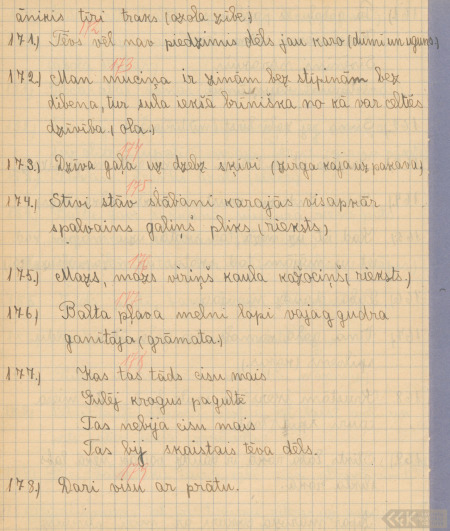 ānikis tīri traks (ozola zīle)
172
171.) Tēvs vēl nav piedzimis dēls jau karo (dūmi un uguns.)
173
172.) Man muciņa ir zinām bez stīpinām bez
dibena, tur sula iekšā brīniška no kā var celtēs
dzīvība (ola.)
174
173.) Dzīva gaļa uz dzelz sķīvi (zirga kāja uz pakava)
175
174.) Stīvi stāv slābani karājās visapkār
spalvains galiņš pliks (rieksts)
176
175.) Mazs, mazs vīriņš kaula kažociņš (rieksts.)
177
176.) Balta pļava melni lopi vajag gudra
ganītāja (grāmata.)
178
177.) Kas tas tāds cisu mais
Gulēj kragus pagultē
Tas nebija cisu mais
Tas bij skaistais tēva dēls.
179
178.) Dari visu ar prātu.